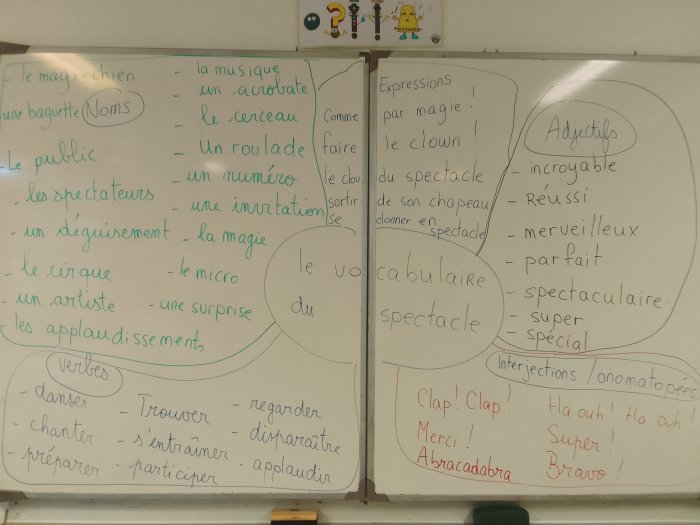 - le magi-chien
une baguette
Noms
- Le public
- les spectateurs
- un déguisement
- le cirque
- un artiste
- les applaudissements
- la musique
- un acrobate
- le cerceau
- Un roulade
- un numéro
- une invitation
- la magie
- le micro
- une surprise
Expressions
Comme par magie !
faire le clown !
le clou du spectacle
sortir de son chapeau
se donner en spectacle
Adjectifs
- incroyable
- Réussi
- merveilleux
- parfait
- spectaculaire
- super
- spécial
le vocabulaire
du spectacle
verbes
- danser
- chanter
- préparer
- Trouver
- s'entraîner
- participer
- regarder
- disparaître
- applaudir
Interjections / onomatopées
Clap ! Clap !
Merci !
Abracadabra
Ha ouh ! Ha ouh !
Super !
Bravo !